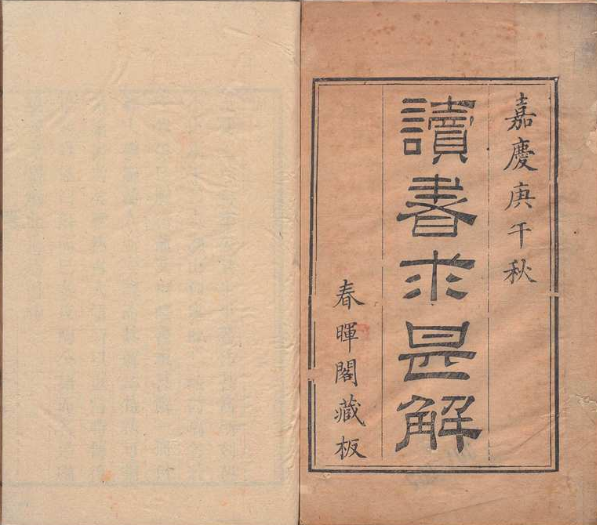 嘉慶庚午秋
讀書求甚解
春暉閣藏板